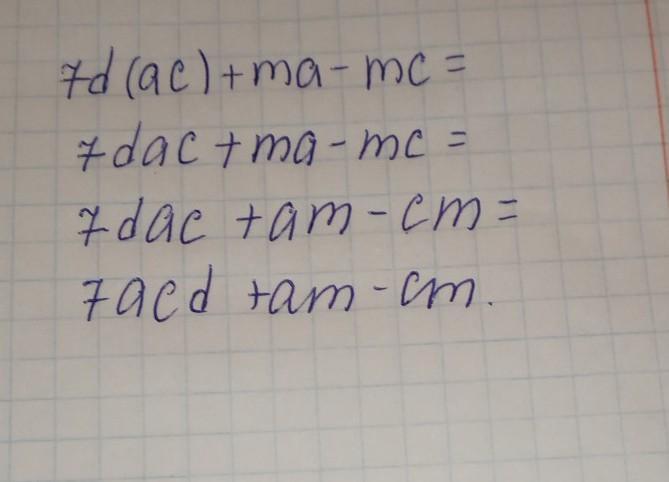 7d(ac)+ma-mc=
7dac+ma-mc=
7dac +am-cm=
7acd +am-cm.